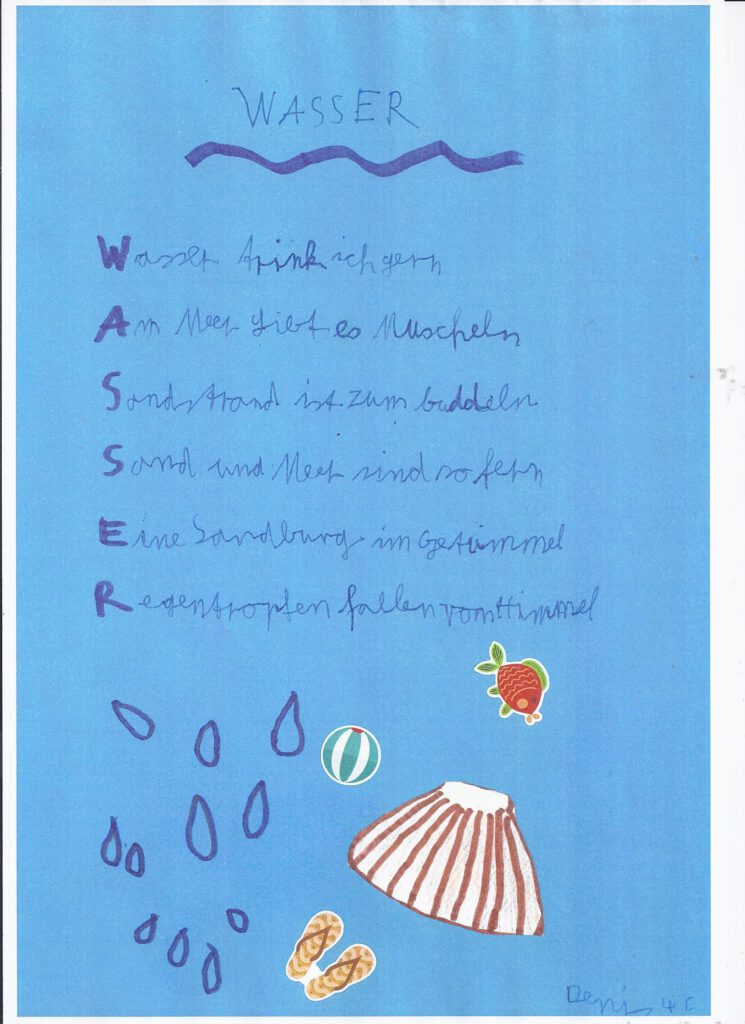 WASSER
Wasser trink ich gern
Am Meer gibt es Muscheln
Sandstrand ist zum buddeln
Sand und Meer sind so fern
Eine Sandburg im Getümmel
Regentropfen fallen vom Himmel
Denis 4c